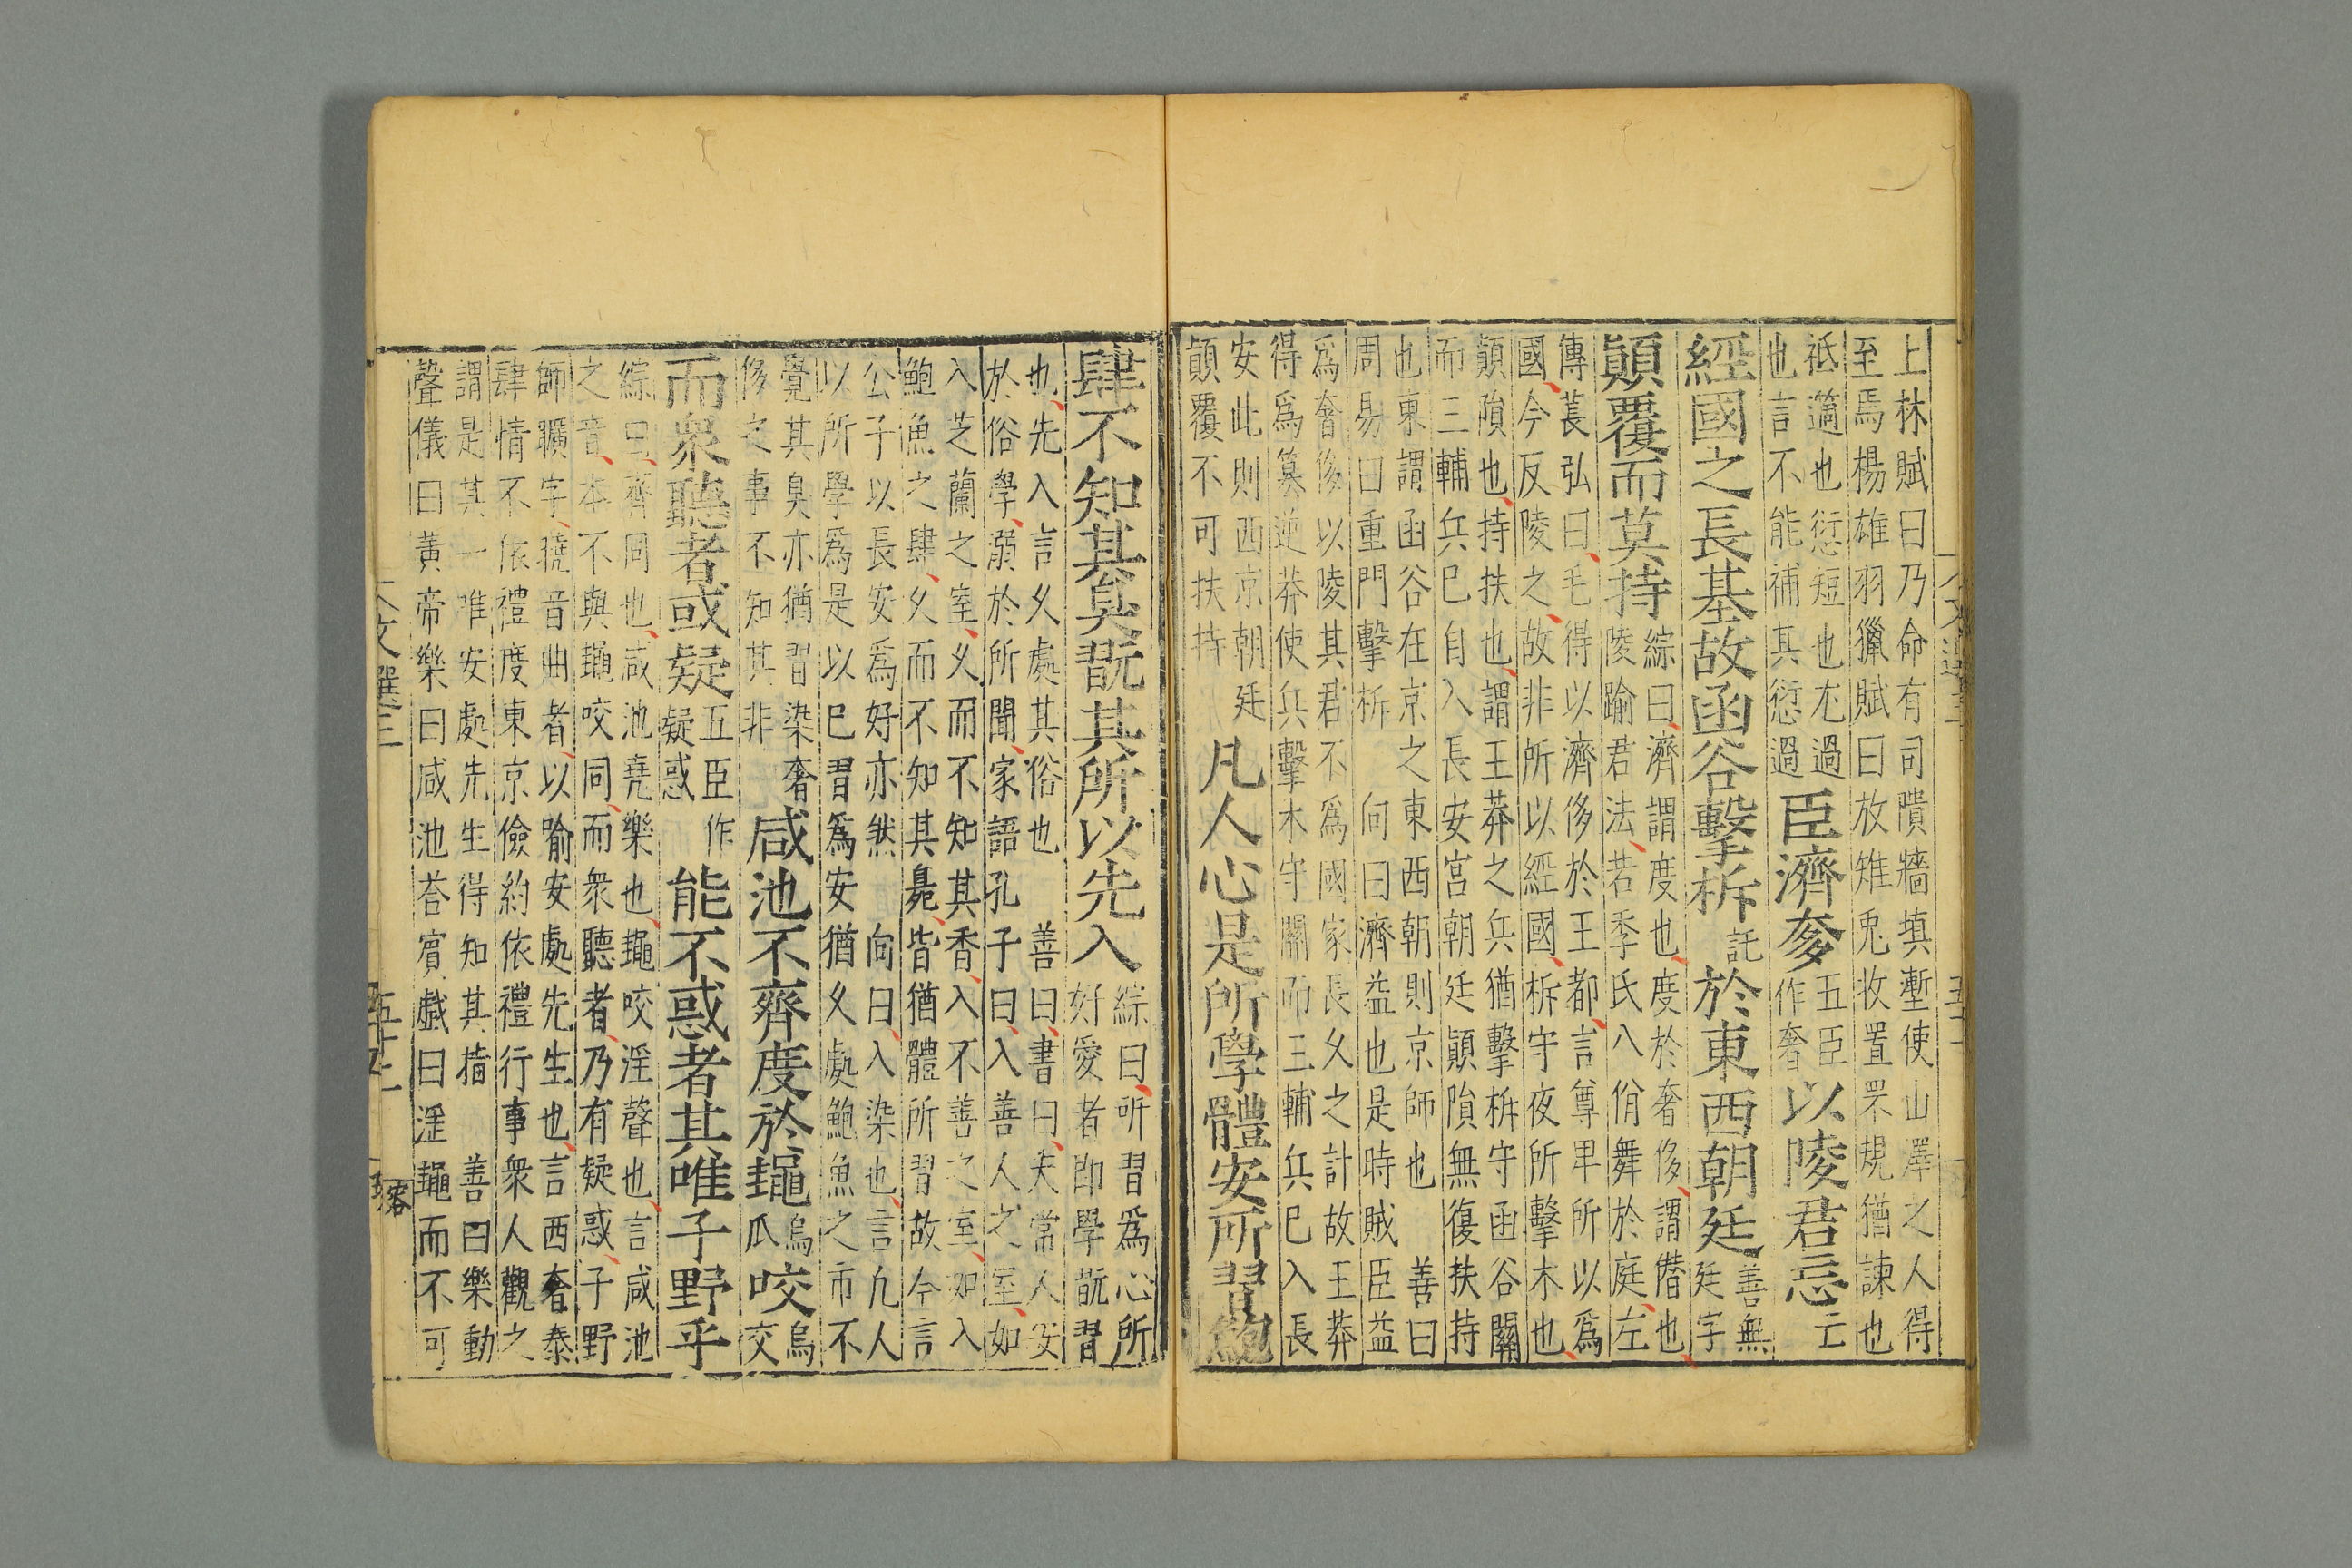 上林賦曰乃命有司隤牆填壍使山澤之人得
至焉楊雄羽獵賦曰放雉兎收罝罘規猶諫也
祗適也愆短也尤過
也言不能補其愆過
臣濟奓
五臣
作奢
以陵君忘
亡
經國之長基故函谷擊柝
託
於東西朝廷
善無
廷字
顛覆而莫持
綜曰濟謂度也度於奢侈謂僭也
陵踰君法若季氏八佾舞於庭左
傳萇弘曰毛得以濟侈於王都言尊卑所以爲
國今反陵之故非所以經國柝守夜所擊木也
顛隕也持扶也謂王莽之兵猶擊柝守函谷關
而三輔兵已自入長安宮朝廷顛隕無復扶持
也東謂函谷在京之東西朝則京師也 善曰
周易曰重門擊柝 向曰濟益也是時賊臣益
爲奢侈以陵其君不爲國家長久之計故王莽
得爲簒逆莽使兵擊木守關而三輔兵已入長
安此則西京朝廷
顛覆不可扶持
凡人心是所學體安所習鮑
肆不知其臰翫其所以先入
綜曰所習爲心所
好愛者即學翫習
也先入言久處其俗也 善曰書曰夫常人安
於俗學溺於所聞家語孔子曰入善人之室如
入芝蘭之室久而不知其香入不善之室如入
鮑魚之肆久而不知其臰皆猶體所習故今言
公子以長安爲好亦然 向曰入染也言凡人
以所學爲是以已習爲安猶久處鮑魚之市不
覺其臭亦猶習染奢
侈之事不知其非
咸池不齊度於䵷
烏
瓜
咬
烏
交
而衆聽者或疑
五臣作
疑惑
能不惑者其唯子野乎
綜曰齊同也咸池堯樂也䵷咬淫聲也言咸池
之音本不與䵷咬同而衆聽者乃有疑惑子野
師曠字曉音曲者以喻安處先生也言西奢泰
肆情不依禮度東京儉約依禮行事衆人觀之
謂是其一唯安處先生得知其指 善曰樂動
聲儀曰黃帝樂曰咸池荅賓戲曰淫䵷而不可
文選三